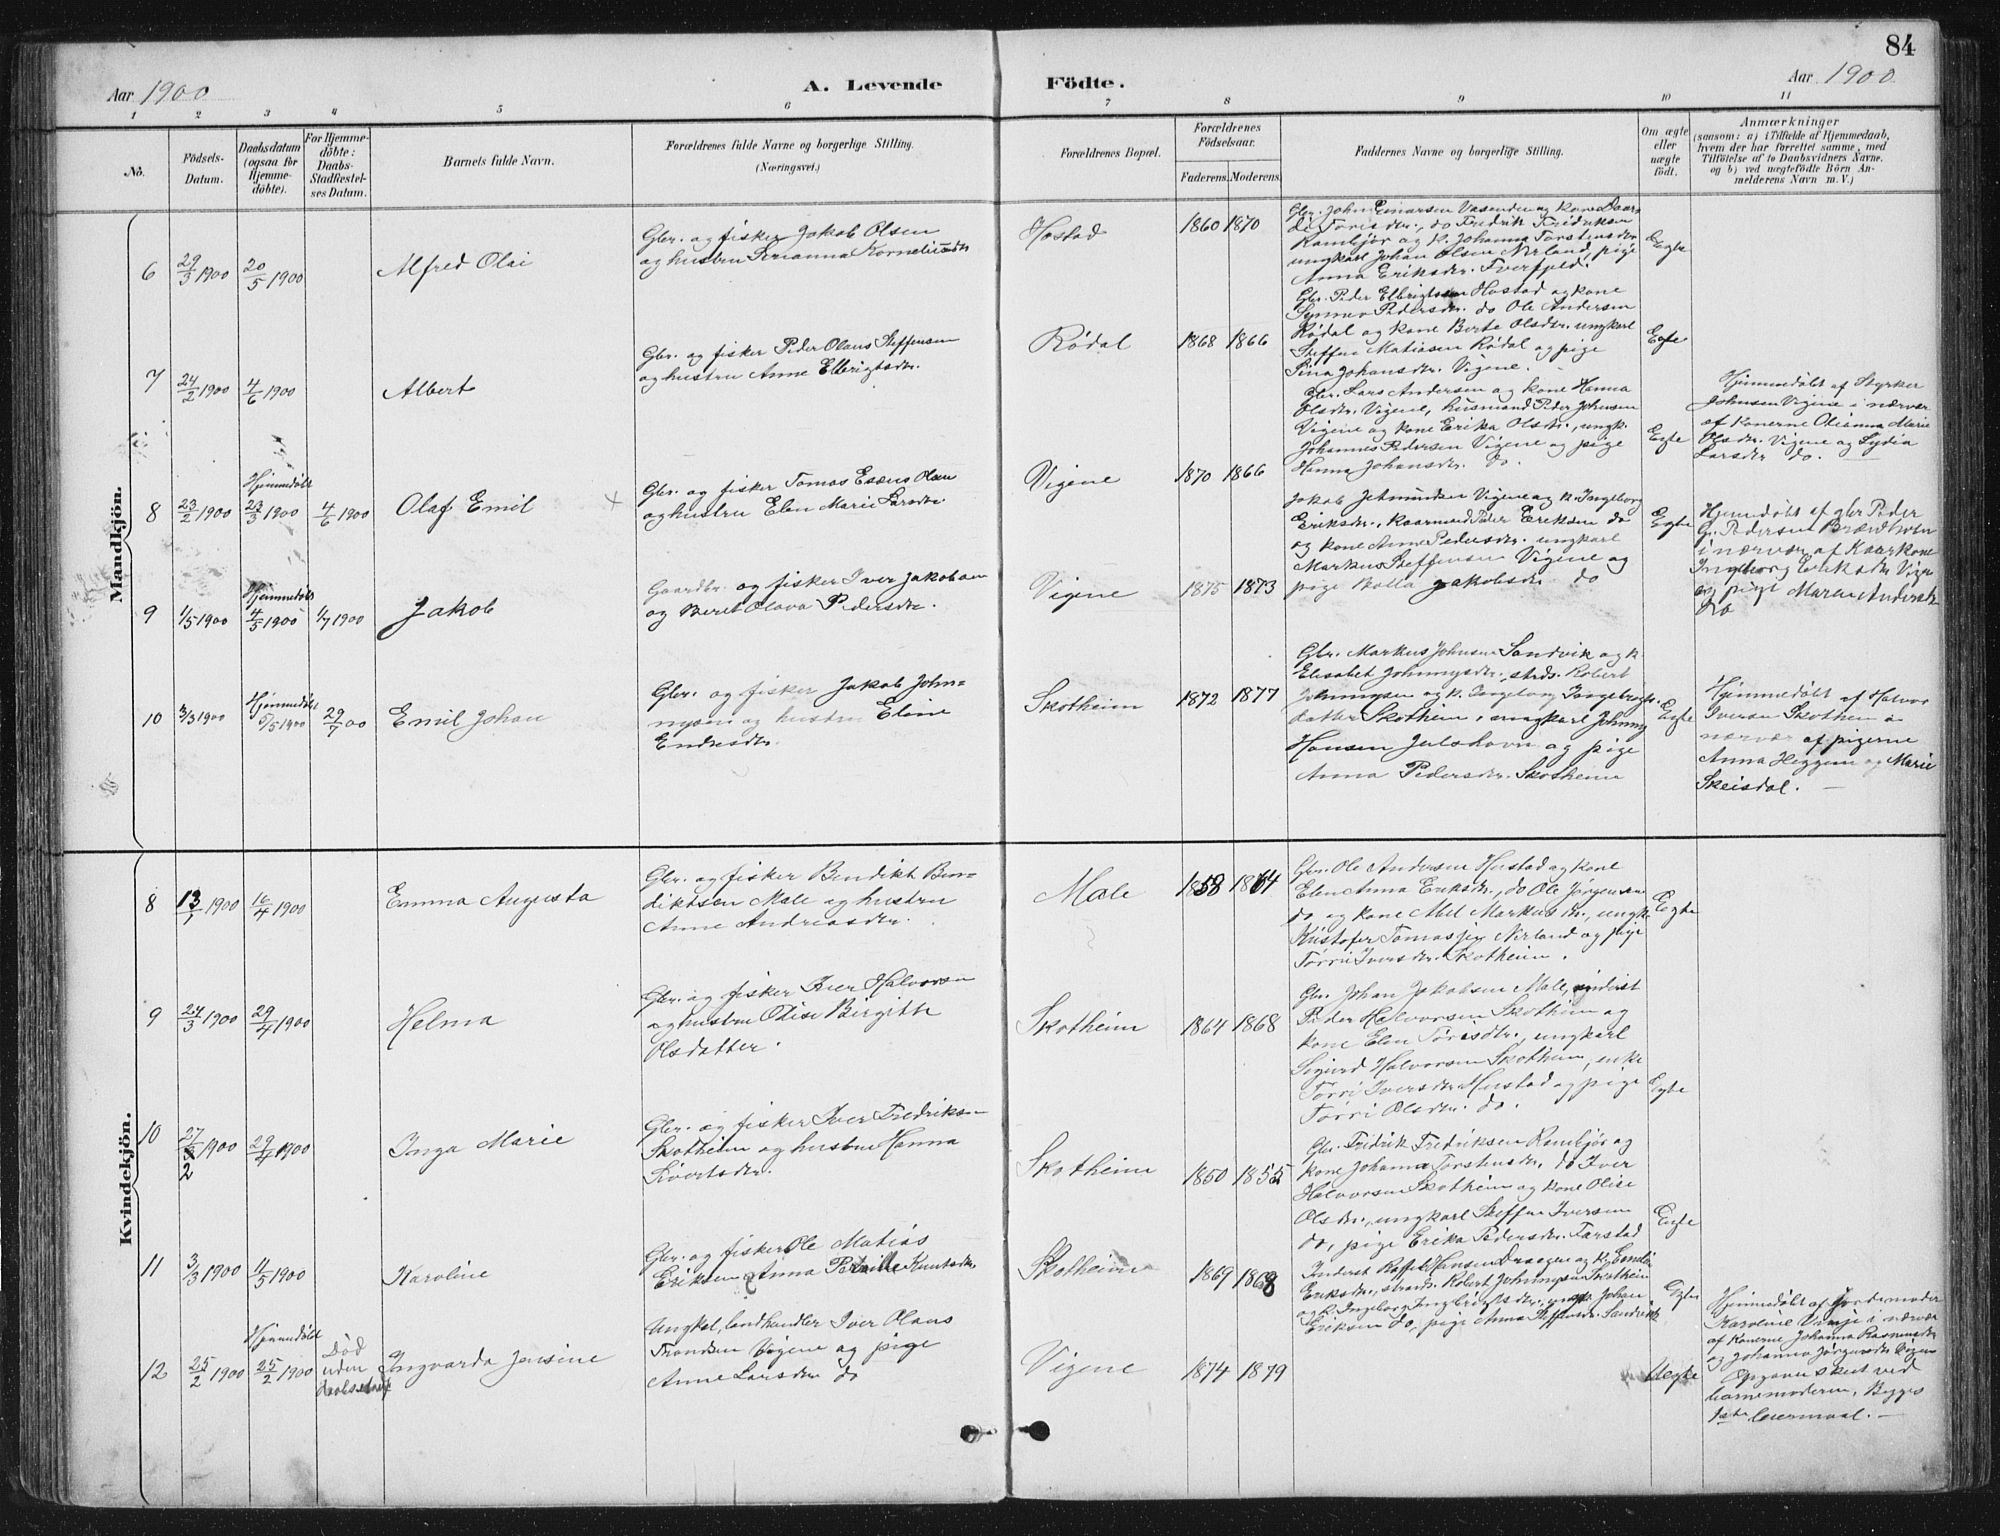 84
Aar 1900
A. Levende
Födte.
Aar 1900
1 2 3 4 5 6 7 8 9 10 11
No.
Födsels-
Datum.
Daabsdatum
(ogsaa for
Hjemme-
döbte).
For Hjemme-
döbte:
Daabs-
Stadfæstel-
ses Datum.
Barnets fulde Navn.
Forældrenes fulde Navne og borgerlige Stilling.
(Næringsvei.)
Forældrenes Bopæl.
Forældrenes
Födselsaar.
Faderens.
Moderens.
Faddernes Navne og borgerlige Stilling.
Om ægte
eller
uægte
födt.
Anmærkninger
(saasom: a) i Tilfælde af Hjemmedaab,
hvem der har forrettet samme, med
Tilföielse af to Daabsvidners Navne,
og b) ved uægtefödte Börn An-
melderens Navn m. V.)
Mandkjön.
6 29/3 1900 20/5 1900 Alfred Olai
Gbr. og fisker Jakob Olsen
og hustru
Hostad 1860 1870
ungkarl Johan Olsen Nerland, pige
Anna Eriksdtr. Tverfjeld.
Egte
7 24/2 1900 4/6 1900 Albert
Gbr. og fisker Peder Olaus Steffensen
og hustru Anne Elbrigtsdtr.
Rödal 1868 1866
Gbr. Peder Elbrigtsen Hostad og kone
Synnev Pedersdtr. do Ole Andersen
Rödal og kone Berte Olsdtr. ungkarl
Steffen Matiasen Rödal og pige
Sina Johansdtr. Vigene.
Egte
8 23/2 1900 Hjemmedöbt 23/3 1900 4/6 1900 Olaf Emil
Gbr. og fisker Tomas Esæus Olsen
og hustru Elen Marie Larsdtr.
Vigene 1870 1866
Gbr. Lars Andersen og kone Hanna
Olsdtr. Vigene, husmand Peder Johnsen
Vigene og kone Erika Olsdtr., ungk.
Johannes Pedersen Vigene og pige
Hanna Johansdtr. do.
Egte
Hjemmedöbt af Styrker
Johnsen Vigene i nærvær
af konerne Olianna Marie
Olsdtr. Vigene og Lydia
Larsdtr do. —
9 1/5 1900 Hjemmedöbt 4/5 1900 1/7 1900 Jakob
Gaardbr. og fisker Iver Jakobsen
og Beret Olava Pedersdtr.
Vigene 1875 1873
Jakob Jetmundsen Vigene og k. Ingeborg
Eriksdtr., kaarmand Peder Eriksen do
og kone Anne Pedersdtr. ungkarl
Markus Steffensen Vigene og
pige Jakobsdtr do
Egte
Hjemmedöbt af gbr Peder
i nærvær af Kaarkone
Ingeborg Eriksdtr Vigene
og pige Maren Andersdtr
do
10 3/3 1900 Hjemmedöbt 5/5 1900 29/7 00 Emil Johan
Gbr. og fisker Jakob John-
nysen og hustru Eline
Endresdtr.
Skotheim 1872 1877
Gbr. Markus Johnsen Sandvik og k.
Elisabet Johnnysdtr., strds. Robert
Johnnysen og k. Ingeborg
datter Skotheim, ungkarl Johnny
Hansen Julshavn og pige
Anna Pedersdtr. Skotheim
Egte
Hjemmedöbt af Halvor
Iversen Skotheim i
nærvær af pigerne
Anna Heggem og Marie
Skeisdal. —
Kvindekjön.
8 13/1 1900 16/4 1900 Emma Augusta
Gbr. og fisker Bendikt Ben-
diktsen Male og hustru
Anne Andreasdtr.
Male 1858 1864
Gbr. Ole Andersen Hustad og kone
Elen Anna Eriksdtr., do Ole Jörgensen
do, og kone Abel Markusdtr., ungk.
Kristofer Nerland og pige
Törri Iversdtr. Skotheim.
Egte
9 24/3 1900 29/4 1900 Helma
Gbr. og fisker Iver Halvorsen
og hustru Olise Birgitte
Olsdatter.
Skotheim 1864 1868
Gbr. Johan Jakobsen Male, inderst
Peder Halvorsen Skotheim og
kone Elen Törisdtr., ungkarl
Sigurd Halvorsen Skotheim, enke
Törri Iversdtr Hustad og pige
Törri Olsdtr. do.
Egte
10 27/2 1900 29/4 1900 Inga Marie
Gbr. og fisker Iver Fredriksen
Skotheim og hustru Hanna
Sivertsdtr.
Skotheim 1850 1855
Gbr. Fridrik Fredriksen Rambjör og
kone Johanna Torstensdtr. do Iver
Halvorsen Skotheim og kone Olise
Olsdtr., ungkarl Steffen Iversen
do, pige Erika Pedersdtr. Farstad
Egte
11 3/3 1900 11/5 1900 Karoline
Gbr. og fisker Ole Matias
Eriksen og Anna Pernille Knutsdtr
Skotheim 1869 1868
Inderst og k. Emilie
Eriksdtr., strands. Robert Johnnysen Skotheim
Johan
Eriksen do, pige Anna Steffensdtr. Sandvik
Egte
12 25/2 1900 Hjemmedöbt 25/2 1900
Död
uden
daabsstadf.
Ingvarda Jensine
Ungkel, landhandler Iver Olaus
Trondsen Vigene og pige
Anne Larsdtr do
Vigene 1874 1879
Uegte
Hjemmedöbt af Jordemoder
Karoline Vevje i nærvær
af konerne Johanna Rasmusdtr
og Johanna Jörgensdtr Vigene
Opgaven skeet ved
barnemoderen, Begges
1ste leiermaal. —